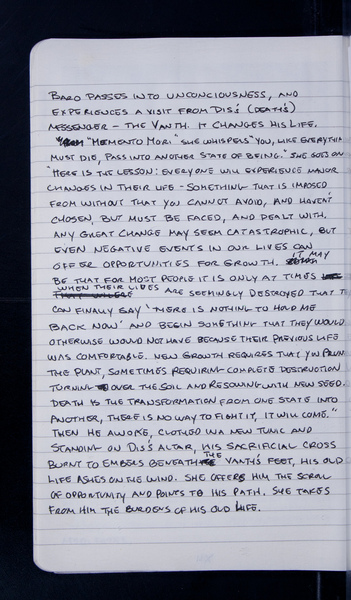 BARO PASSES INTO UNCONCIOUSNESS, AND
EXPERIENCES A VISIT FROM DIS'S (DEATH'S)
MESSENGER - THE VANTH. IT CHANGES HIS LIFE.
"MEMENTO MORI" SHE WHISPERS "YOU, LIKE EVERYTHIN
MUST DIE, PASS INTO ANOTHER STATE OF BEING." SHE GOES ON
"HERE IS THE LESSON: EVERYONE WILL EXPERIENCE MAJOR
CHANGES IN THEIR LIFE - SOMETHING THAT IS IMPOSED
FROM WITHOUT THAT YOU CANNOT AVOID, AND HAVEN'T
CHOSEN, BUT MUST BE FACED, AND DEALT WITH.
ANY GREAT CHANGE MAY SEEM CATASTROPHIC, BUT
EVEN NEGATIVE EVENTS IN OUR LIVES CAN
OFFER OPPORTUNITIES FOR GROWTH. IT MAY
BE THAT FOR MOST PEOPLE IT IS ONLY AT TIMES
WHEN THEIR LIVES ARE SEEMINGLY DESTROYED THAT T
CAN FINALLY SAY 'THERE IS NOTHING TO HOLD ME
BACK NOW' AND BEGIN SOMETHING THAT THEY WOULD
OTHERWISE WOULD NOT HAVE BECAUSE THEIR PREVIOUS LIFE
WAS COMFORTABLE. NEW GROWTH REQUIRES THAT YOU PRUNE
THE PLANT, SOMETIMES REQUIRING COMPLETE DESTRUCTION
TURNING OVER THE SOIL AND RESOWING WITH NEW SEED.
DEATH IS THE TRANSFORMATION FROM ONE STATE INTO
ANOTHER, THERE IS NO WAY TO FIGHT IT, IT WILL COME."
THEN HE AWOKE, CLOTHED IN A NEW TUNIC AND
STANDING ON DIS'S ALTAR, HIS SACRIFICIAL CROSS
BURNT TO EMBERS BENEATH THE VANTH'S FEET, HIS OLD
LIFE ASHES ON THE WIND. SHE OFFERS HIM THE SCROLL
OF OPPORTUNITY AND POINTS TO HIS PATH. SHE TAKES
FROM HIM THE BURDENS OF HIS OLD LIFE.